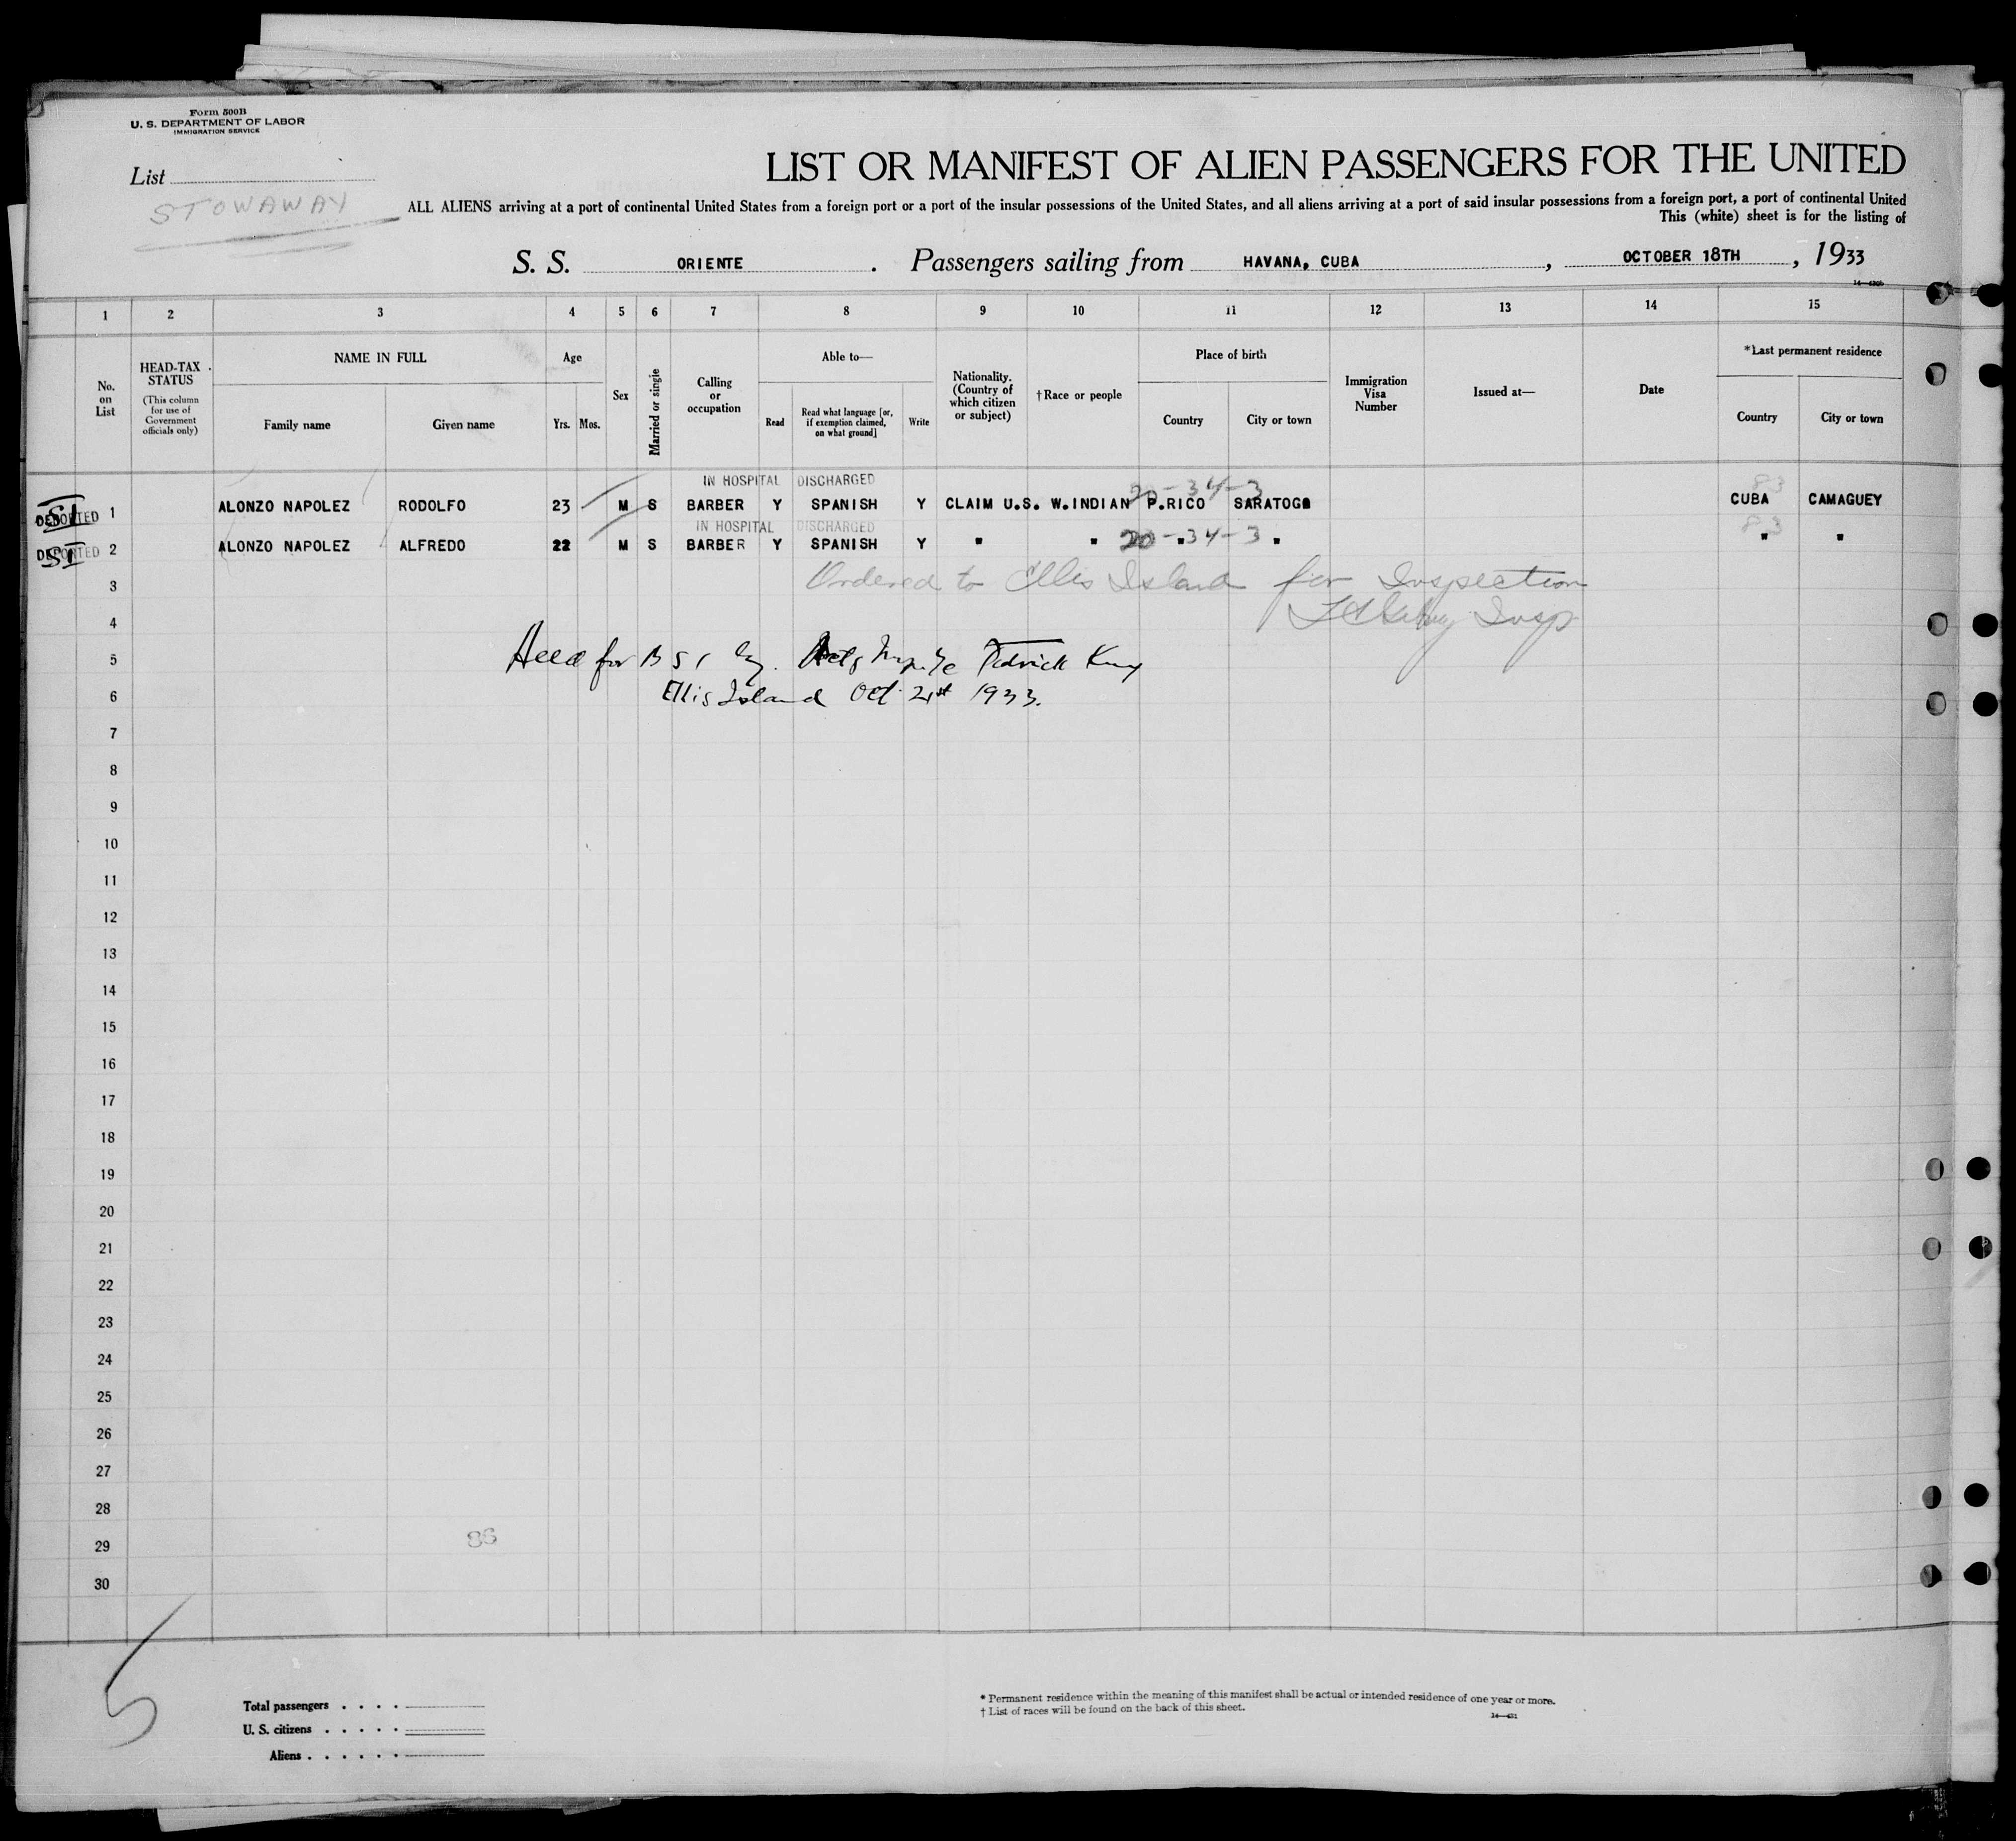 Form 500B
U. S. DEPARTMENT OF LABOR
IMMIGRATION SERVICE
List
STOWAWAY
LIST OR MANIFEST OF ALIEN PASSENGERS FOR THE UNITED
ALL ALIENS arriving at a port of continental United States from a foreign port or a port of the insular possessions of the United States, and all aliens arriving at a port of said insular possessions from a foreign port, a port of continental United
This (white) sheet is for the listing of
S. S. ORIENTE . Passengers sailing from HAVANA, CUBA , OCTOBER 18TH , 1933
1 2 3 4 5 6 7 8 9 10 11 12 13 14 15
No. on List
HEAD-TAX STATUS
(This column for use of Government officials only)
NAME IN FULL
Family name
Given name
Age
Yrs. Mos.
Sex
Married or single
Calling or occupation
Able to—
Read
Read what language [or, if exemption claimed, on what ground]
Write
Nationality. (Country of which citizen or subject)
†Race or people
Place of birth
Country
City or town
Immigration Visa Number
Issued at—
Date
*Last permanent residence
Country
City or town
IN HOSPITAL DISCHARGED 20-34-3 83
DEPORTED SI 1 ALONZO NAPOLEZ RODOLFO 23 M S BARBER Y SPANISH Y CLAIM U.S. W.INDIAN P.RICO SARATOGO CUBA CAMAGUEY
IN HOSPITAL DISCHARGED 83
DEPORTED SI 2 ALONZO NAPOLEZ ALFREDO 22 M S BARBER Y SPANISH Y " " 20-34-3 " " " "
3 Ordered to Ellis Island for Inspection
4 Insp
5 Held for B S I by Patrick King
6 Ellis Island Oct 21st 1933.
7
8
9
10
11
12
13
14
15
16
17
18
19
20
21
22
23
24
25
26
27
28
29
30
5
Total passengers . . . .
U. S. citizens . . . . .
Aliens . . . . . .
* Permanent residence within the meaning of this manifest shall be actual or intended residence of one year or more.
† List of races will be found on the back of this sheet.